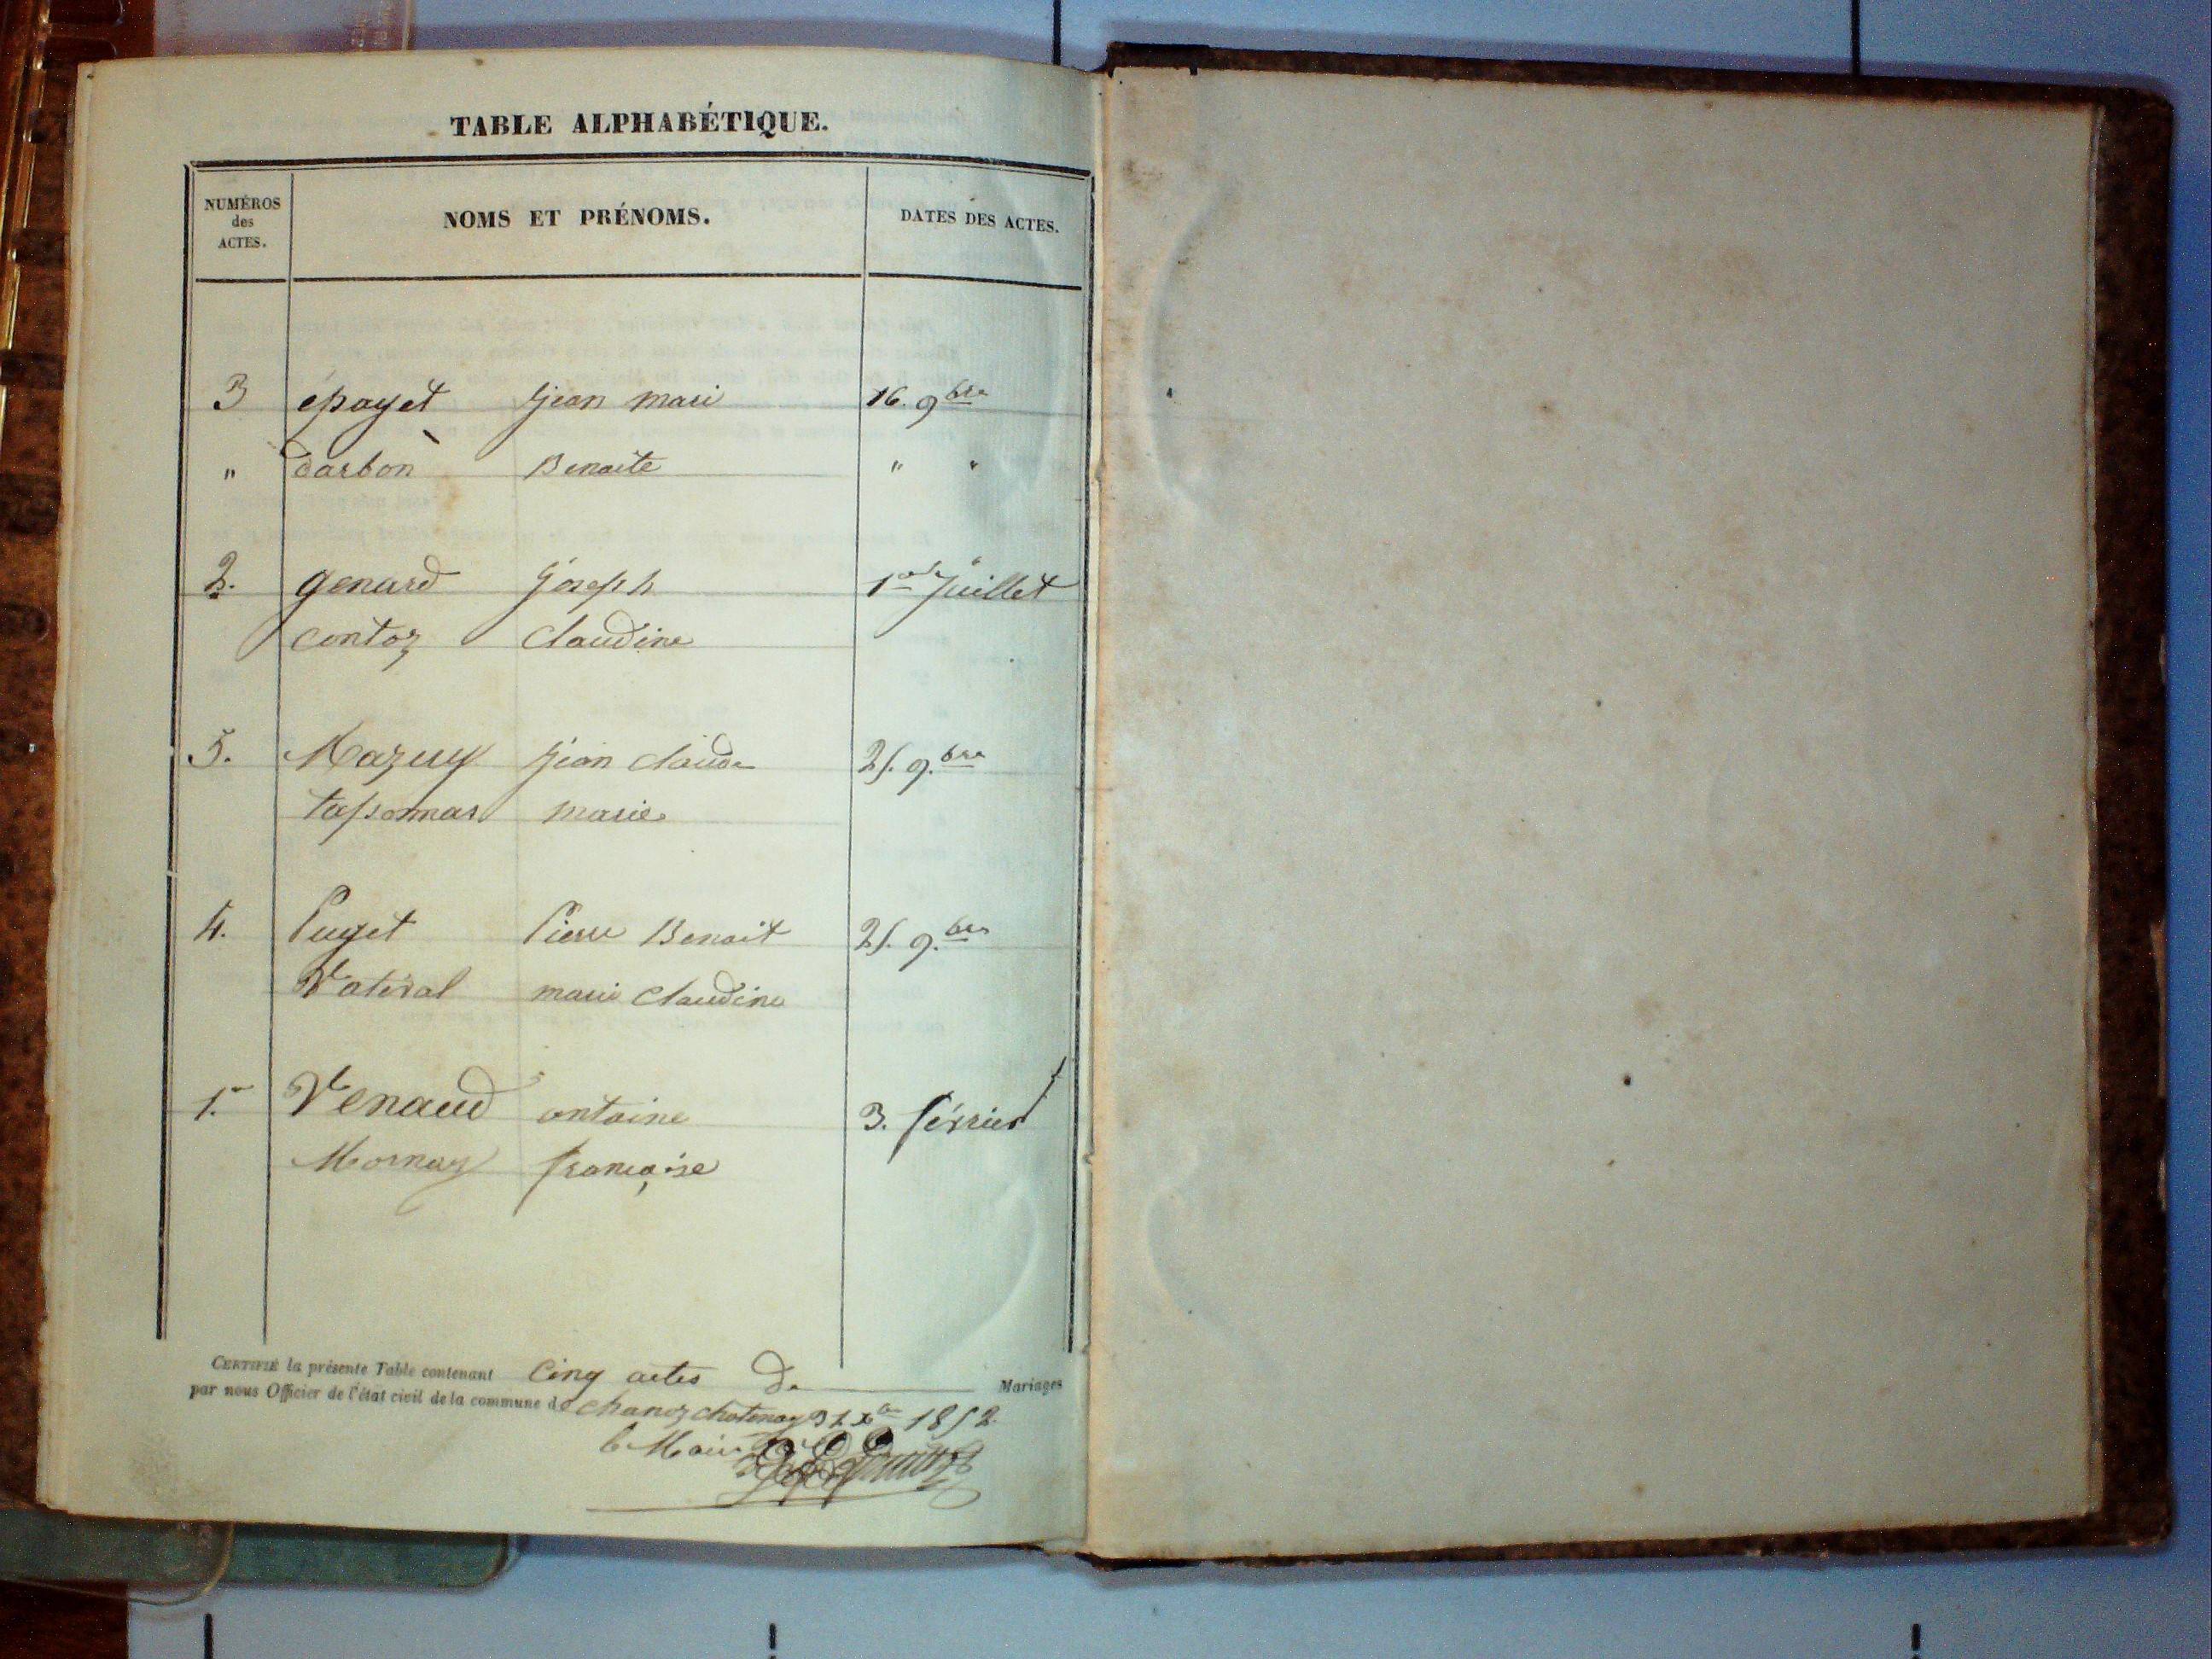 TABLE ALPHABÉTIQUE.
NUMÉROS des ACTES. NOMS ET PRÉNOMS. DATES DES ACTES.
3 epayet jean mari 16. 9bre
" darbon Benoite " "
2. genard joseph 1er Juillet
contoz claudine
5. Mazuy jean claude 25. 9.bre
tassomar marie
4. Puget Pierre Benoit 25. 9.bre
Vateral marie claudine
1. Venaud antoine 3. février
Mornay françoise
CERTIFIÉ la présente Table contenant Cinq actes de Mariages
par nous Officier de l'état civil de la commune de chanoz chatenay 31 xbre 1852.
le Maire